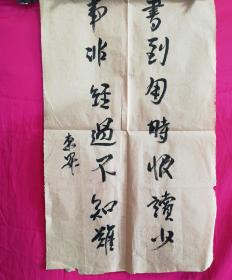 書到用時恨讀少
事非經過不知難